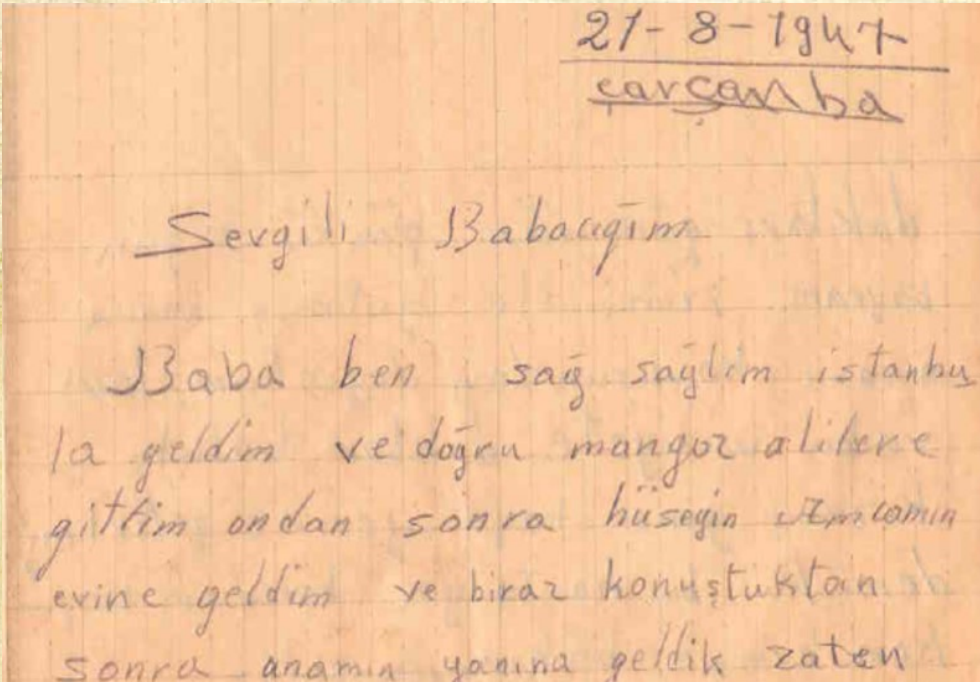 21-8-1947
çarşanba
Sevgili Babacığım
Baba ben sağ sağlim istanbu
la geldim ve doğru mangoz alilere
gittim ondan sonra hüseyin Amcamın
evine geldim ve biraz konuştuktan
sonra anamın yanına geldik zaten